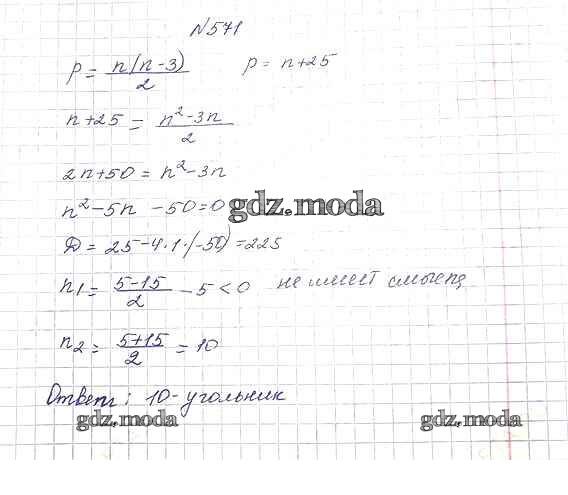 №571
p = n(n-3)/2   p = n+25
n+25 = n²-3n/2
2n+50 = n²-3n
n²-5n -50=0
gdz.moda
D = 25-4·1·(-50)=225
n₁ = 5-15/2 - 5 < 0 не имеет смысла
n₂ = 5+15/2 = 10
Ответ: 10-угольник
gdz.moda gdz.moda